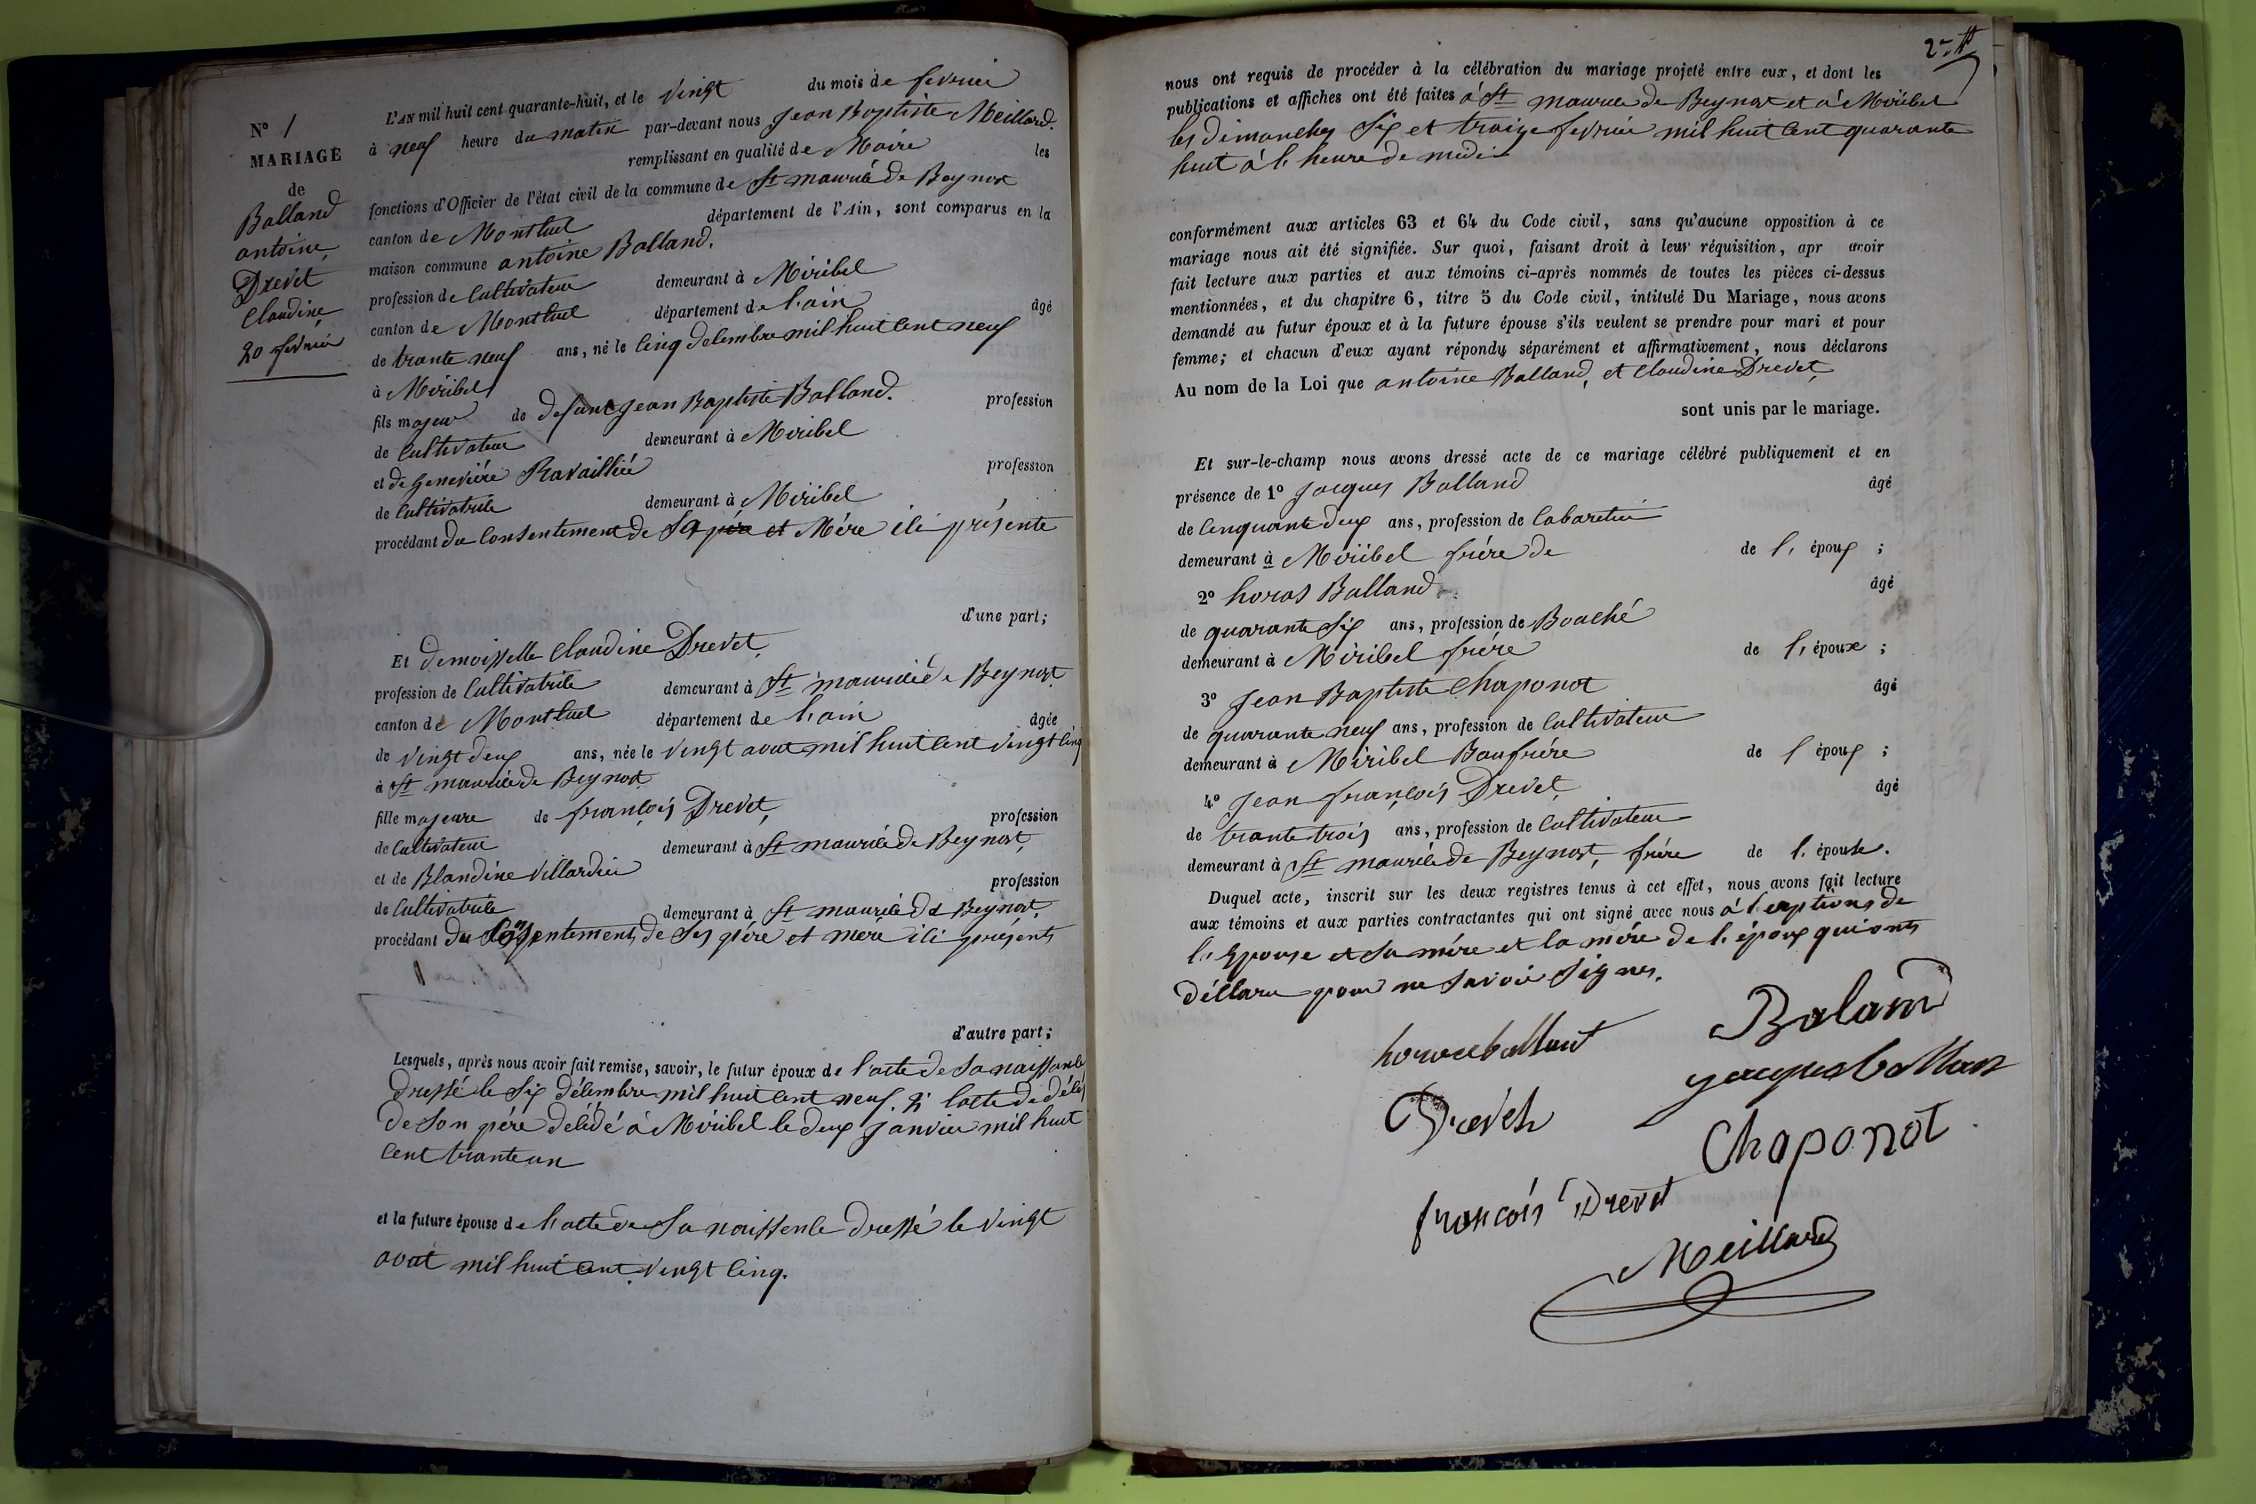 N° 1
MARIAGE
de
Balland
antoine,
Drevet
Claudine
20 fevrier
L'AN mil huit cent quarante-huit, et le vingt du mois de fevrier
à neuf heure du matin par-devant nous Jean Baptiste Meillard.
remplissant en qualité de Maire les
fonctions d'Officier de l'état civil de la commune de St maurice de Beynost
canton de Montluel département de l'Ain, sont comparus en la
maison commune antoine Balland.
profession de Cultivateur demeurant à Miribel
canton de Montluel département de l'ain âgé
de trante neuf ans, né le Cinq decembre mil huit Cent neuf
à Miribel
fils majeur de defunt Jean Baptiste Balland. profession
de Cultivateur demeurant à Miribel
et de Genevière profession
de Cultivatrice demeurant à Miribel
procédant du Consentement de Sa père et Mère ici présente
d'une part;
Et demoisselle Claudine Drevet,
profession de Cultivatrice demeurant à St mauricie de Beynost
canton de Montluel département de l'ain âgée
de vingt deux ans, née le vingt aout mil huit Cent vingt Cinq
à St maurice de Beynost
fille majeure de françois Drevet, profession
de Cultivateur demeurant à St maurice de Beynost,
et de Blandine Villardier profession
de Cultivatrice demeurant à St maurice de Beynost,
procédant du Consentements de Ses père et mère ici présents
d'autre part;
Lesquels, après nous avoir fait remise, savoir, le futur époux de l'acte de Sa naissance
dressé le Six décembre mil huit Cent neuf. 2° l'acte de décès
de Son père décédé à Miribel le deux Janvier mil huit
Cent trante un
et la future épouse de l'acte de Sa naissence dressé le vingt
avût mil huit Cent vingt Cinq.
2me
nous ont requis de procéder à la célébration du mariage projeté entre eux, et dont les
publications et affiches ont été faites à St maurice de Beynost et à Miribel
les dimanches Six et traize fevrier mil huit Cent quarante
huit à l'heure de midi
conformément aux articles 63 et 64 du Code civil, sans qu'aucune opposition à ce
mariage nous ait été signifiée. Sur quoi, faisant droit à leur réquisition, apr avoir
fait lecture aux parties et aux témoins ci-après nommés de toutes les pièces ci-dessus
mentionnées, et du chapitre 6, titre 5 du Code civil, intitulé Du Mariage, nous avons
demandé au futur époux et à la future épouse s'ils veulent se prendre pour mari et pour
femme; et chacun d'eux ayant répondu séparément et affirmativement, nous déclarons
Au nom de la Loi que antoine Balland, et Claudine Drevet,
sont unis par le mariage.
Et sur-le-champ nous avons dressé acte de ce mariage célébré publiquement et en
présence de 1° Jacques Balland âgé
de Cinquante deux ans, profession de Cabaretier
demeurant à Miribel frère de de l'époux ;
2° horas Balland âgé
de quarante Six ans, profession de Bouché
demeurant à Miribel frère de l'époux ;
3° Jean Baptiste Chaponot âgé
de quarante neuf ans, profession de Cultivateur
demeurant à Miribel Baufrère de l'époux ;
4° Jean françois Drevet, âgé
de trante trois ans, profession de Cultivateur
demeurant à St maurice de Beynost, frère de l'épouse.
Duquel acte, inscrit sur les deux registres tenus à cet effet, nous avons fait lecture
aux témoins et aux parties contractantes qui ont signé avec nous à l'exeptions de
l'Epouse et Sa mère et la mère de l'époux qui onts
déclaru pour ne Savoir Signer.
horaceballand
Baland
Jacques ballan
Drevet
Chaponot
françois Drevet
Meillard